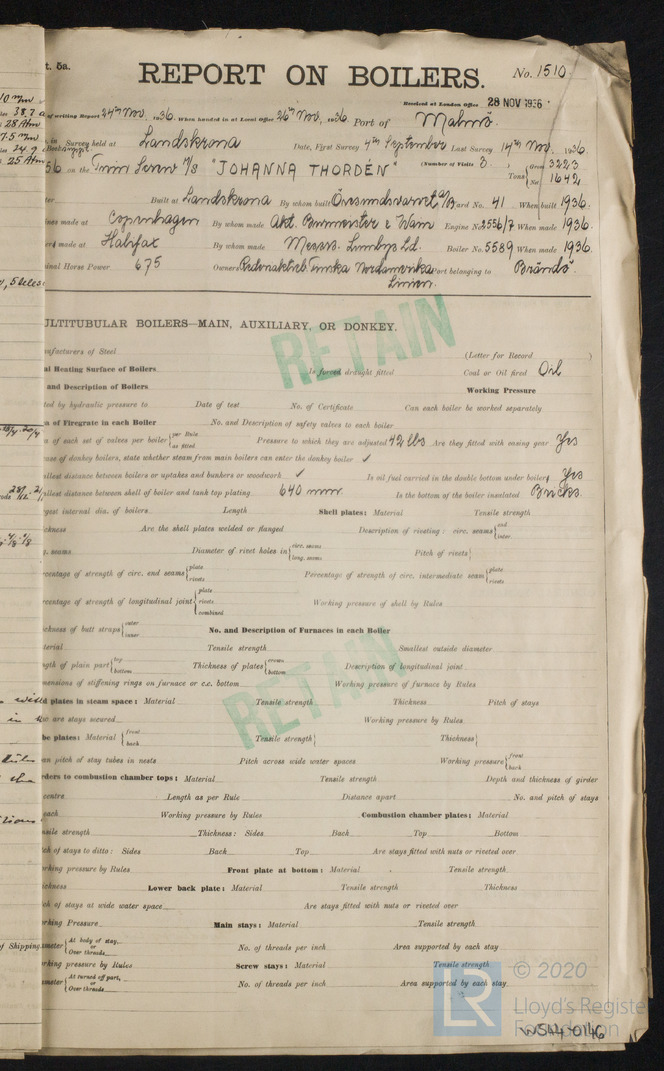 t. 5a.
REPORT ON BOILERS.
No. 1510
Received at London Office 28 NOV 1936
of writing Report 24th Nov. 1936 When handed in at Local Office 26th Nov. 1936 Port of Malmö.
in Survey held at Landskrona Date, First Survey 4th September Last Survey 14th Nov. 1936
on the Twin Screw M/s "JOHANNA THORDÉN" (Number of Visits 3.) Tons Gross 3223 Net 1642
Built at Landskrona By whom built Öresundsvarvet A/B Yard No. 41 When built 1936.
made at Copenhagen By whom made Akt. Burmeister & Wain Engine No. 5556/7 When made 1936.
made at Halifax By whom made Messrs. Lumbys Ld. Boiler No. 5589 When made 1936.
Horse Power 675 Owners Rederiaktieb. Finska Nordamerika Linien. Port belonging to Brändö
ULTITUBULAR BOILERS—MAIN, AUXILIARY, OR DONKEY.
nufacturers of Steel (Letter for Record )
al Heating Surface of Boilers Is forced draught fitted Coal or Oil fired Oil
and Description of Boilers Working Pressure
ted by hydraulic pressure to Date of test No. of Certificate Can each boiler be worked separately
of Firegrate in each Boiler No. and Description of safety valves to each boiler
of each set of valves per boiler { per Rule as fitted Pressure to which they are adjusted 42 lbs Are they fitted with easing gear Yes
ase of donkey boilers, state whether steam from main boilers can enter the donkey boiler ✓
allest distance between boilers or uptakes and bunkers or woodwork ✓ Is oil fuel carried in the double bottom under boilers Yes
allest distance between shell of boiler and tank top plating 640 mm Is the bottom of the boiler insulated Bricks.
gest internal dia. of boilers Length Shell plates: Material Tensile strength
ckness Are the shell plates welded or flanged Description of riveting: circ. seams { end inter.
. seams Diameter of rivet holes in { circ. seams long. seams Pitch of rivets {
centage of strength of circ. end seams { plate rivets Percentage of strength of circ. intermediate seam { plate rivets
rcentage of strength of longitudinal joint { plate rivets combined Working pressure of shell by Rules
ickness of butt straps { outer inner No. and Description of Furnaces in each Boiler
terial Tensile strength Smallest outside diameter
ngth of plain part { top bottom Thickness of plates { crown bottom Description of longitudinal joint
mensions of stiffening rings on furnace or c.c. bottom Working pressure of furnace by Rules
plates in steam space: Material Tensile strength Thickness Pitch of stays
are stays secured Working pressure by Rules
be plates: Material { front back Tensile strength { Thickness {
an pitch of stay tubes in nests Pitch across wide water spaces Working pressure { front back
rders to combustion chamber tops: Material Tensile strength Depth and thickness of girder
centre Length as per Rule Distance apart No. and pitch of stays
each Working pressure by Rules Combustion chamber plates: Material
nsile strength Thickness: Sides Back Top Bottom
ch of stays to ditto: Sides Back Top Are stays fitted with nuts or riveted over
rking pressure by Rules Front plate at bottom: Material Tensile strength
ickness Lower back plate: Material Tensile strength Thickness
ch of stays at wide water space Are stays fitted with nuts or riveted over
rking Pressure Main stays: Material Tensile strength
ameter { At body of stay, or Over threads No. of threads per inch Area supported by each stay
rking pressure by Rules Screw stays: Material Tensile strength
ameter { At turned off part, or Over threads No. of threads per inch Area supported by each stay
RETAIN
RETAIN
LR
© 2020
Lloyd's Register
Foundation
W544-0146